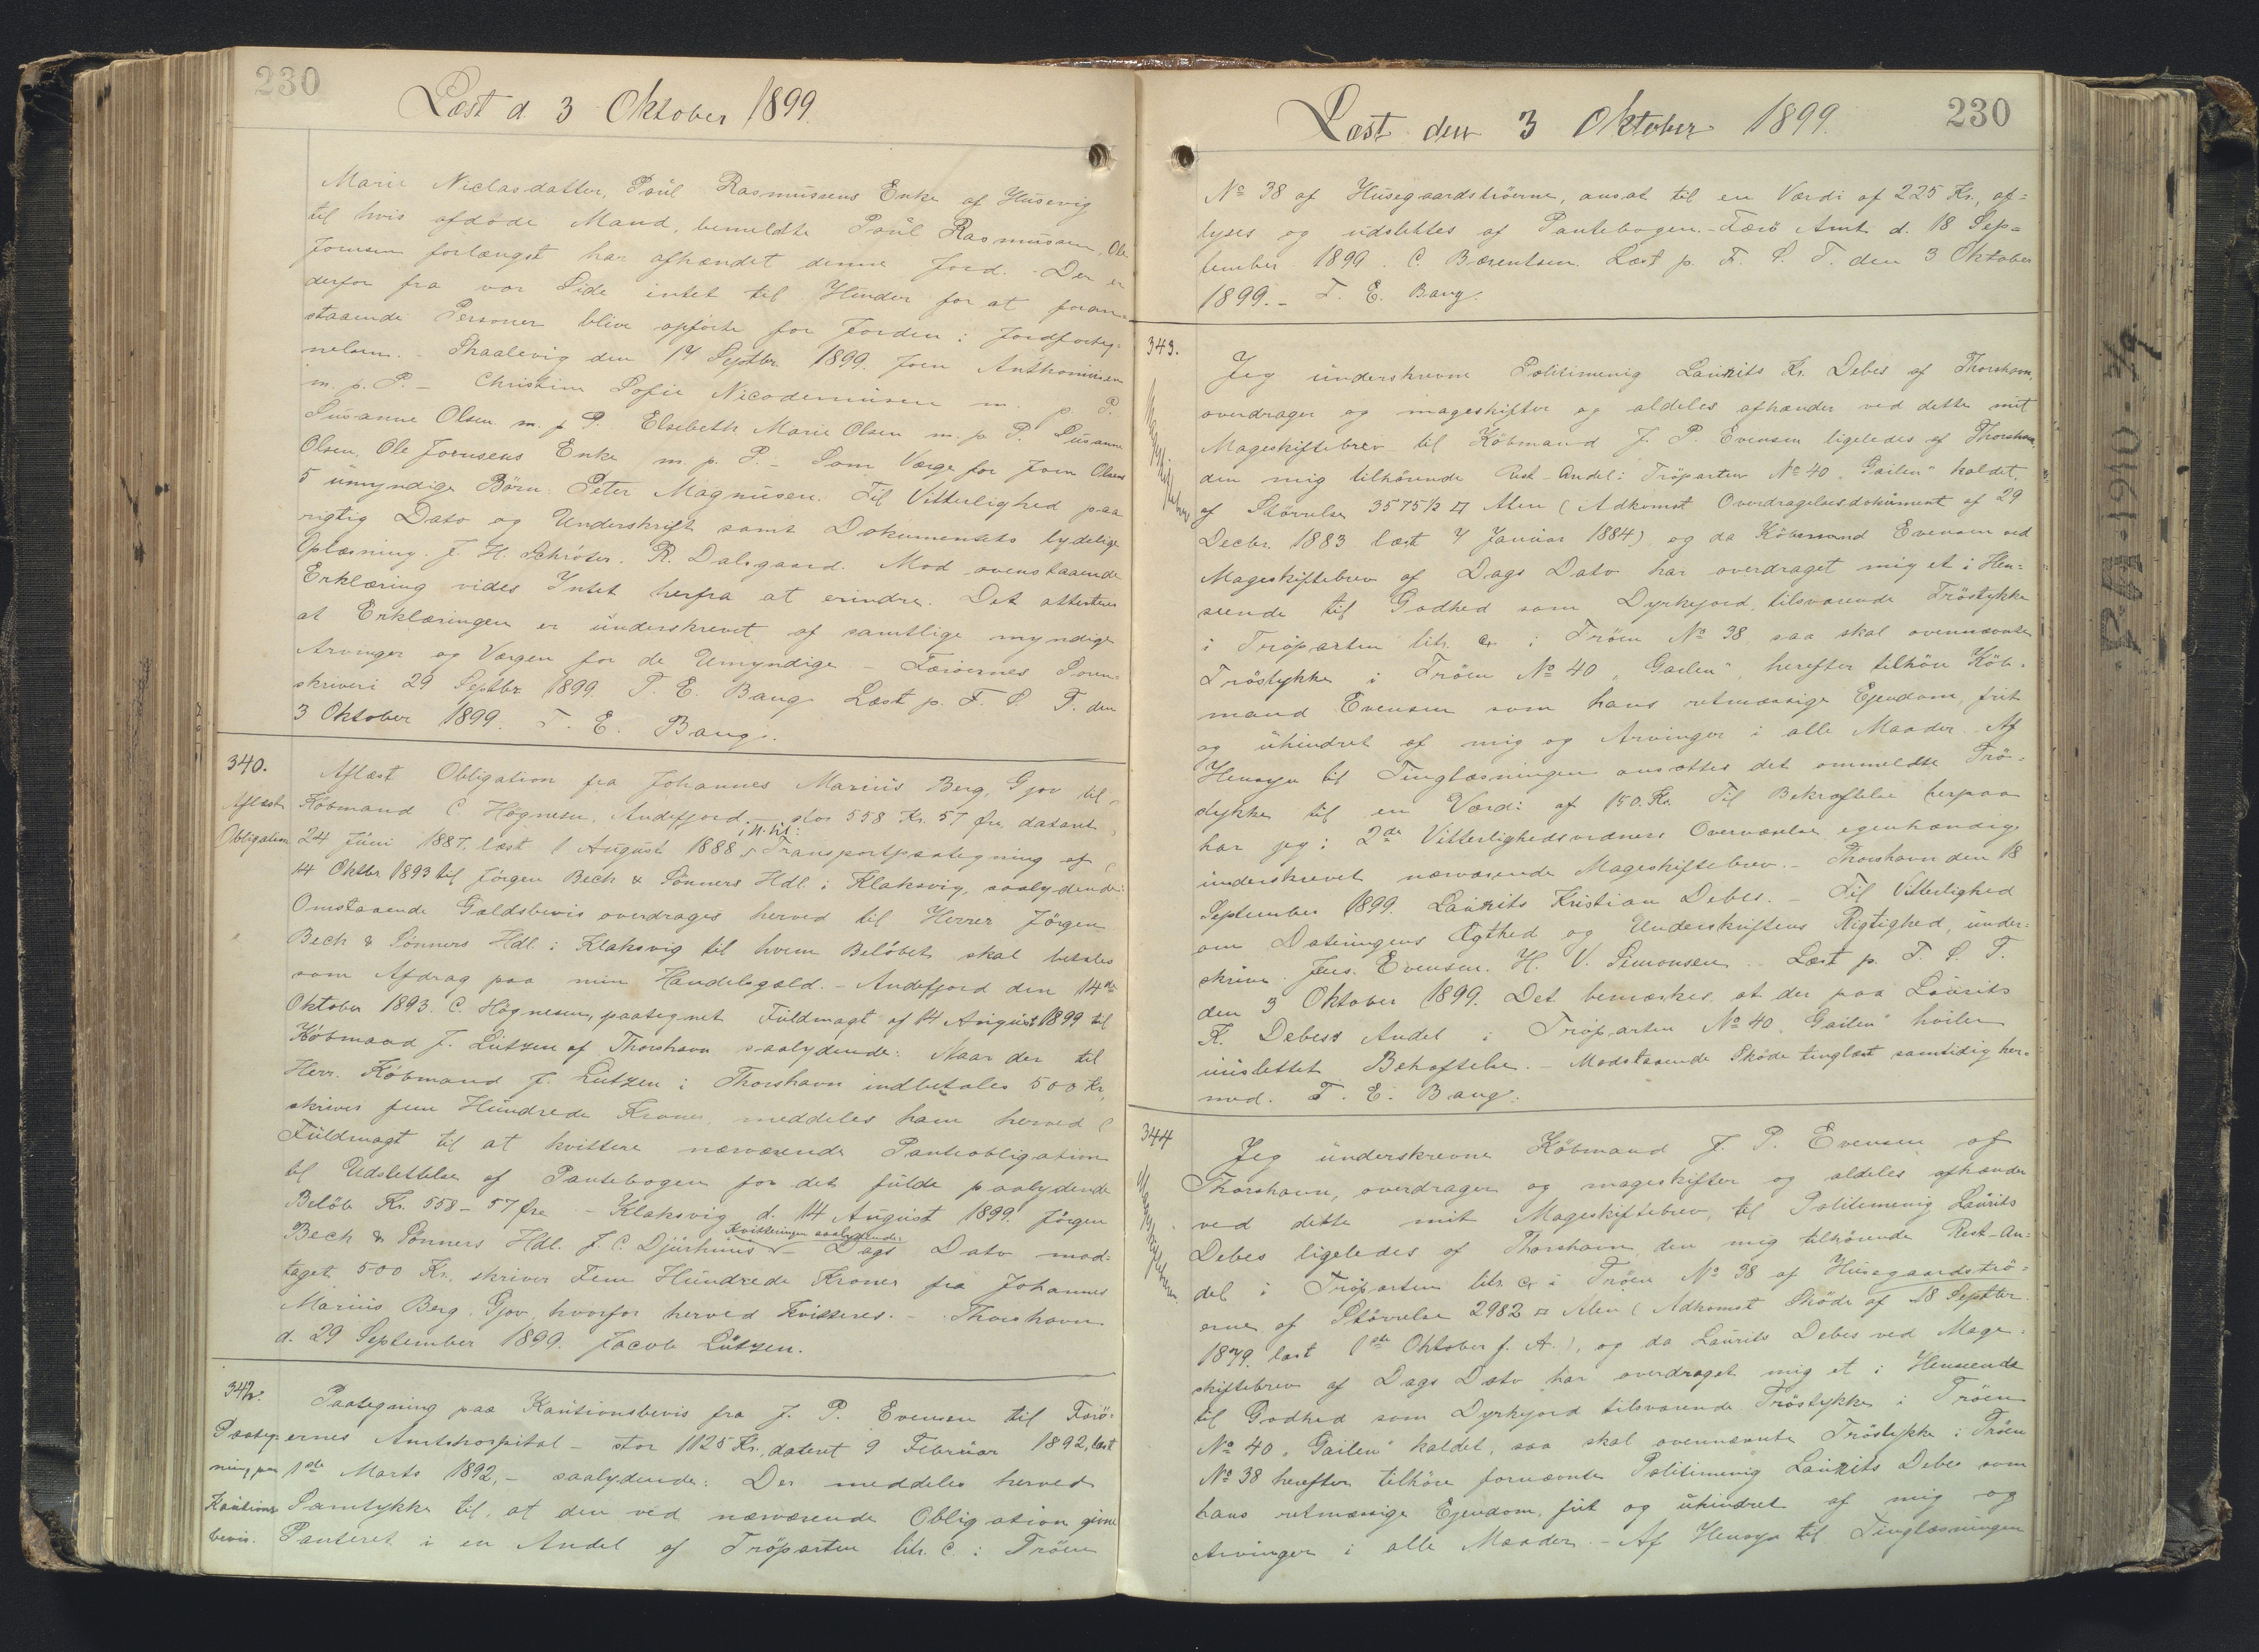 230
Læst d 3 Oktober 1899.
Marie Niclasdatter, Poül Rasmüssens Enke af Husevig
til hvis afdöde Mand, bemeldte Poül Rasmüssen, Ole
Joensen forlængst har afhændet denne Jord. - Der er
derfor fra vor Side intet til Hinder for at foran-
staaende Personer blive opförte for Jorden i Jordforteg-
nelsen. - Skaalevig den 17 Septbr. 1899. Joen Anthoniüsen
m. p. P. - Christine Sofie Nicodemüsen m. p. P.
Susanne Olsen m. p. P. Elsebeth Marie Olsen m. p. P. Susanne
Olsen, Ole Joensens Enke m. p. P. - Som Værge for Joen Olsens
5 ümyndige Börn: Peter Magnüsen. Til Vitterlighed paa
rigtig Dato og Underskrift samt Dokumentets lydelige
Oplæsning. J. H. Schröter. R. Dalsgaard. Mod ovenstaaende
Erklæring vides Intet herfra at erindre. Det attesteres
at Erklæringen er ünderskrevet af samtlige myndige
Arvinger og Værgen for de Umyndige. - Færöernes Soren-
skriveri 29 Septbr. 1899. T. E. Bang. Læst p. F. S. T. den
3 Oktober 1899. T. E. Bang.
340.
Aflæst
Obligation
Aflæst Obligation fra Johannes Mariüs Berg, Gjov til
Köbmand C Högnesen, Andefjord, stor 558 Kr. 57 Öre, dateret
24 Jüni 1887, læst 1 Aügüst 1888, Transportpaategning af
14 Oktbr. 1893 til Jörgen Bech & Sönners Hdl. i Klaksvig, saalydende:
Omstaaende Gældsbevis overdrages herved til Herrer Jörgen
Bech & Sönners Hdl. i Klaksvig til hvem Belöbet skal betales
som Afdrag paa min Handelsgæld. - Andefjord den 14de
Oktober 1893. C. Högnesen, paategnet Füldmagt af 14 Aügüst 1899 til
Köbmand J. Lützen af Thorshavn saalydende: Naar der til
Herr. Köbmand J. Lützen i Thorshavn indbetales 500 Kr,
skriver fem Hündrede Kroner, meddeles ham herved
Füldmagt til at kvittere nærværende Panteobligation
til Udslettelse af Pantebogen for det fülde paalydende
Belöb Kr. 558 - 57 Öre - Klaksvig d. 14 Aügüst 1899. Jörgen
Bech & Sönners Hdl. J. C. Djürhüüs - Kvitteringen saalydende: Dags Dato mod-
taget 500 Kr., skriver Fem Hündrede Kroner fra Johannes
Mariüs Berg, Gjov, hvorfor herved Kvitteres. - Thorshavn
d. 29 September 1899. Jacob Lützen.
342.
Paateg-
ning paa
Kaütions-
bevis.
Paategning paa Kaütionsbevis fra J. P. Evensen til Færö-
ernes Amtshospital - stor 1125 Kr., dateret 9 Februar 1892, læst
1ste Marts 1892, - saalydende: Der meddeles herved
Samtykke til, at den ved nærværende Obligation givne
Panteret i en Andel af Tröparten litr. C. i Tröen
230
Læst den 3 Oktober 1899.
No 38 af Hüsegaardströerne, ansat til en Værdi af 225 Kr., af-
lyses og üdslettes af Pantebogen. - Færö Amt d. 18 Sep-
tember 1899. C. Bærentsen. Læst p. F. S. T. den 3 Oktober
1899. - T. E. Bang.
343.
Mageskiftebrev
Jeg ünderskrevne Politimenig Laürits Kr. Debes af Thorshavn,
overdrager og mageskifter og aldeles afhænder ved dette mit
Mageskiftebrev til Köbmand J. P. Evensen ligeledes af Thorshavn,
den mig tilhörende Rest-Andel i Tröparten No 40 "Gailen" kaldet,
af Störrelse 3575 1/2 □ Alen (Adkomst Overdragelsesdokument af 29
Decbr. 1883 læst 7 Janüar 1884) og da Köbmand Evensen ved
Mageskiftebrev af Dags Dato har overdraget mig et i Hen-
seende til Godhed som Dyrkejord, tilsvarende Tröstykke
i Tröparten litr. C. i Tröen No 38, saa skal ovennævnte
Tröstykke i Tröen No 40 "Gailen", herefter tilhöre Köb-
mand Evensen som hans retmæssige Ejendom, frit
og ühindret af mig og Arvinger i alle Maader. Af
Hensyn til Tinglæsningen ansættes det ommeldte Trö-
stykke til en Værdi af 150 Kr. Til Bekræftelse herpaa
har jeg i 2de Vitterlighedsvidners Overværelse egenhændig
ünderskrevet nærværende Mageskiftebrev. - Thorshavn den 18
September 1899. Laürits Kristian Debes. - Til Vitterlighed
om Dateringens Ægthed og Underskriftens Rigtighed, ünder-
skrive: Jens. Evensen. H. V. Simonsen. - Læst p. F. S. T.
den 3 Oktober 1899. Det bemærkes, at der paa Laürits
K. Debess Andel i Tröparten No 40 "Gailen" hviler
üüslettet Behæftelse. - Modstaaende Sköde tinglæst samtidig her-
med. T. E. Bang.
344
Mageskiftebrev
Jeg ünderskrevne Köbmand J. P. Evensen af
Thorshavn, overdrager og mageskifter og aldeles afhænder
ved dette mit Mageskiftebrev, til Politimenig Laürits
Debes ligeledes af Thorshavn, den mig tilhörende Rest-An-
del i Tröparten litr. C i Tröen No 38 af Hüsegaardströ-
erne, af Störrelse 2982 □ Alen (Adkomst Sköde af 18 Septbr.
1879. læst 1ste Oktober f. A.), og da Laürits Debes ved Mage-
skiftebrev af Dags Dato har overdraget mig et i Henseende
til Godhed som Dyrkejord tilsvarende Tröstykke i Tröen
No 40 "Gailen" kaldet, saa skal ovennævnte Tröstykke i Tröen
No 38 herefter tilhöre fornævnte Politimenig Laürits Debes som
hans retmæssige Ejendom, frit og ühindret af mig og
Arvinger i alle Maader. - Af Hensyn til Tinglæsningen